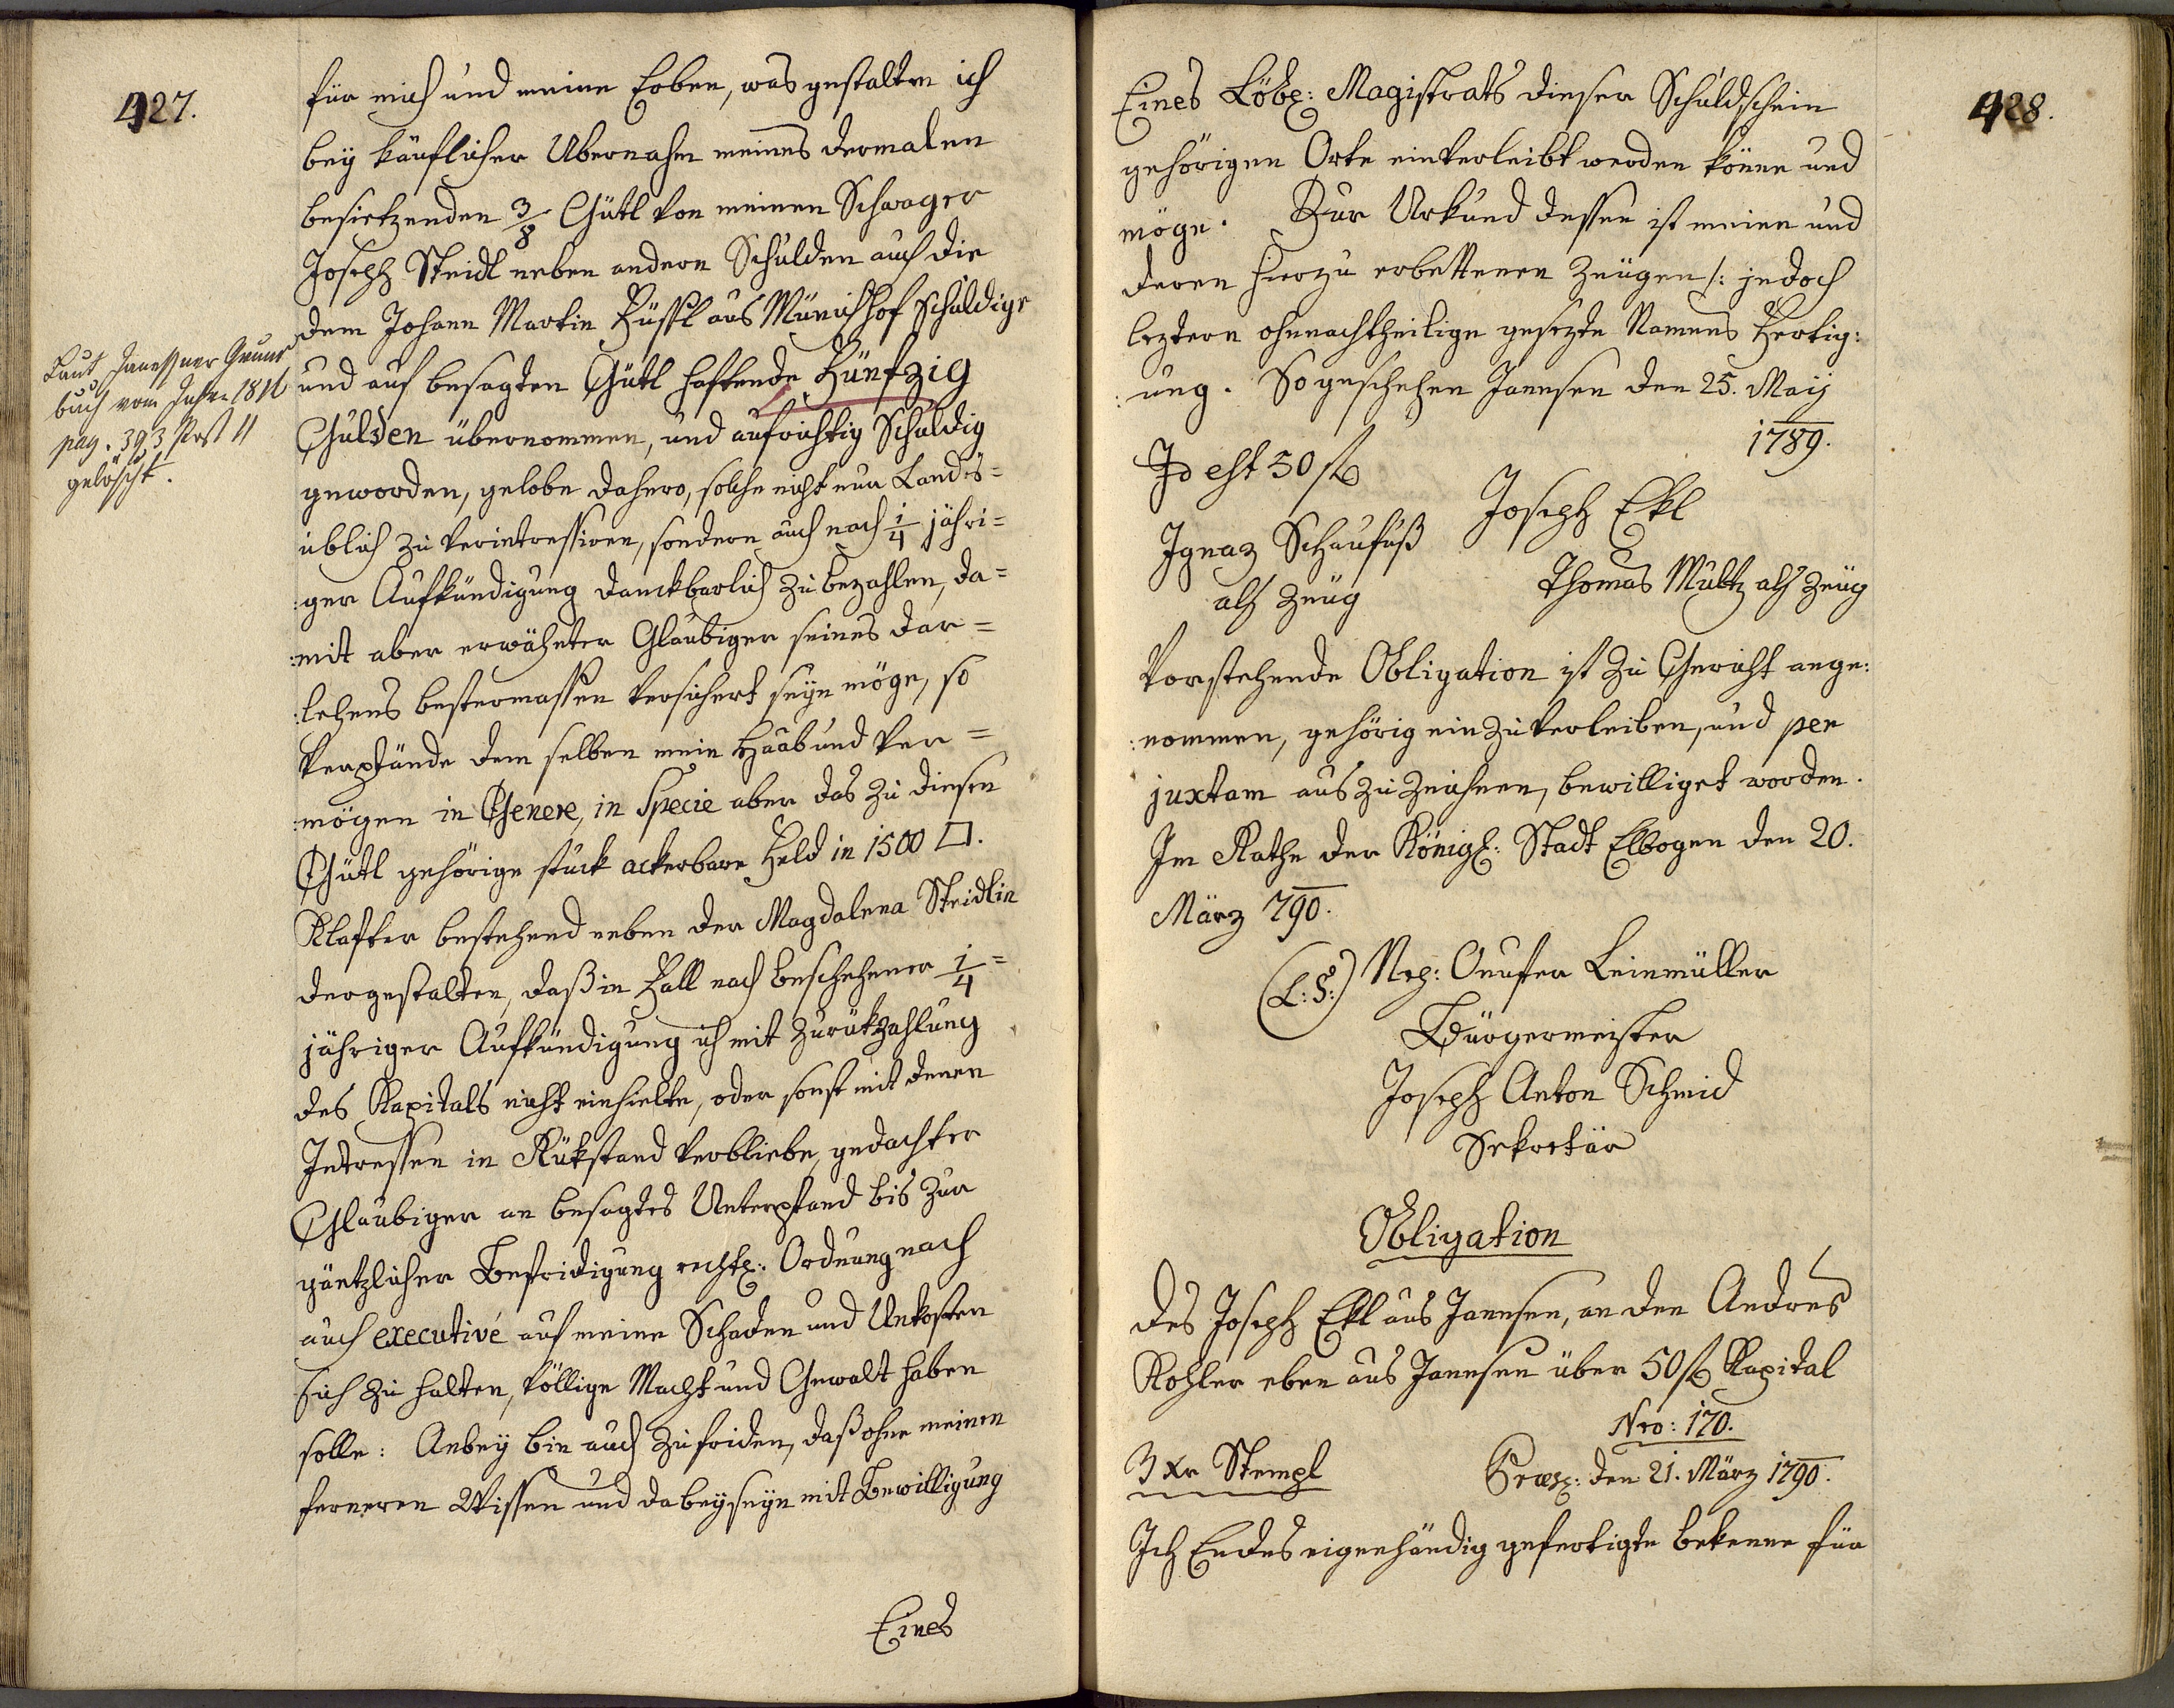 427.
für mich und meine Erben, was gestalten ich
bey käuflicher Ubernahm meines dermalen
besietzenden 3/8 Gütl von meinen Schwager
Joseph Steidl neben andern Schulden auch die
dem Johann Martin Füssl aus Münichhof Schuldige
und auf besagten Gütl haftende Fünfzig
Gulden übernommen, und aufrichtig Schuldig
geworden, gelobe dahero, solche nicht nur Landes=
üblich zu verintressiren, sondern auch nach 1/4 jähri=
:ger Aufkündigung danckbarlich zu bezahlen, da=
:mit aber erwähnter Glaubiger seines dar=
:lehens bestermassen versichert seyn möge, so
verpfände dem selben mein Haab und Ver=
:mögen in Genere, in Specie aber das zu diesen
Gütl gehörige stuck ackerbare Feld in 1500 □.
Klafter bestehend neben der Magdalena Steidlin
dergestalten, daß in Fall nach beschehener 1/4=
jähriger Aufkündigung ich mit Zurükzahlung
des Kapitals nicht einhielte, oder sonst mit denen
Intressen in Rükstand verbliebe, gedachter
Glaubiger an besagtes Unterpfand bis zur
gäntzlicher Befridigung rechtl: Ordnung nach
auch executivé auf meine Schaden und Unkosten
sich zu halten, völlige Macht und Gewalt haben
solle: Anbey bin auch zufriden, daß ohne meinen
ferneren Wissen und dabeyseyn mit Bewilligung
Eines
Laut Janessner Grund
buch vom Jahr 1816
pag. 393 Post 11
gelöscht.
428.
Eines Löbl: Magistrats dieser Schuldschein
gehörigen Orte einverleibt werden könne und
möge. Zur Urkund dessen ist meine und
deren hierzu erbettenen Zeügen /: jedoch
leztern ohnnachtheilige gesezte Namens Fertig:
:ung. So geschehen Jannsen den 25. Maij
1789.
Id est 50 fl
Joseph Ekl
Ignaz Schaufuß
als Zeüg
Thomas Multz als Zeüg
Vorstehende Obligation ist zu Gericht ange:
:nommen, gehörig einzuverleiben, und per
juxtam auszuzeichnen, bewilliget worden.
Im Rathe der Königl: Stadt Elbogen den 20.
März 790.
(L:S:) Nep: Onufer Leinmüller
Bürgermeister
Joseph Anton Schmid
Sekretär
Obligation
des Joseph Ekl aus Jannsen, an den Andres
Kohler eben aus Jannsen über 50 fl Kapital
Nro: 170.
3 Xr Stempl
Præs: den 21. März 1790.
Ich Endes eigenhändig gefertigte bekenne für